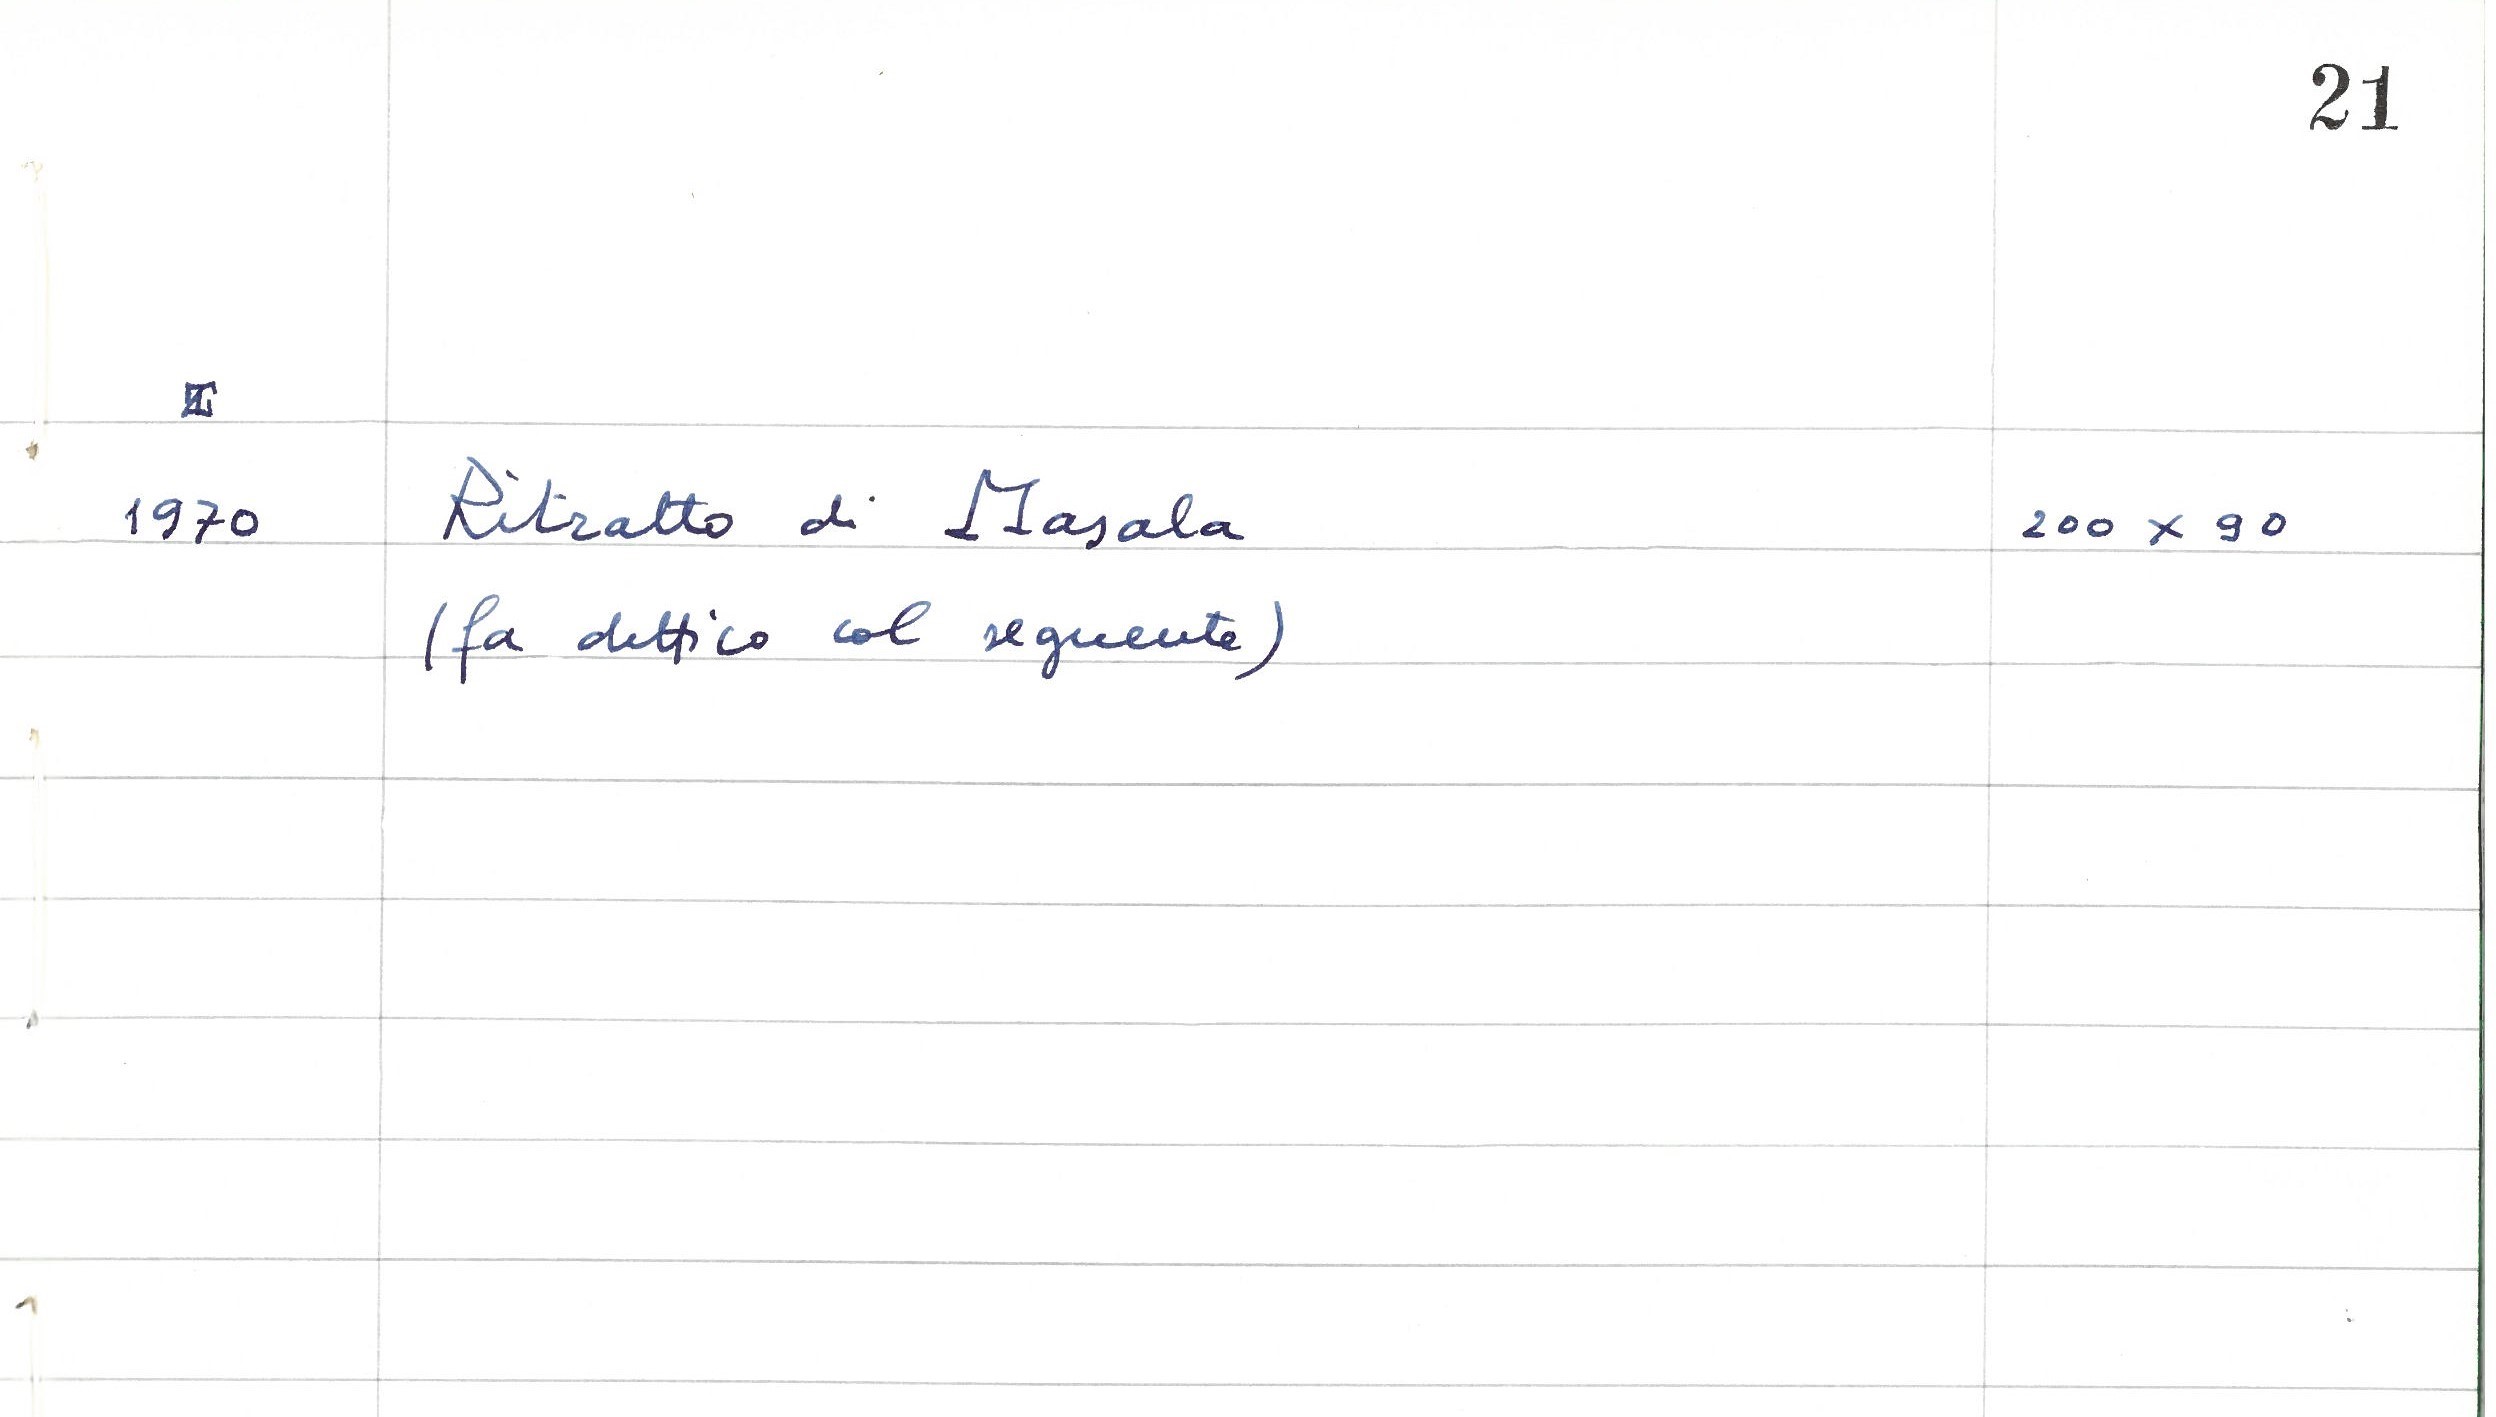 21
1970 Ritratto di Masala 200 x 90
(fa dittico col seguente)